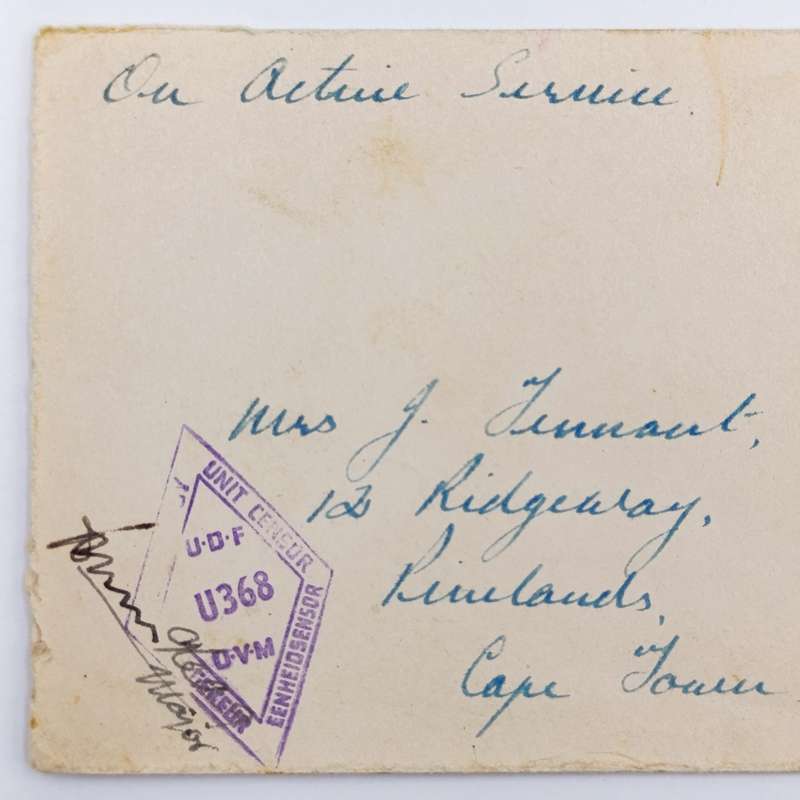 On Active Service
Mrs J. Tennant,
12 Ridgeway,
Pinelands,
Cape Town
UNIT CENSOR
U·D·F
U368
U·D·V·M
EENHEIDSENSOR
Major